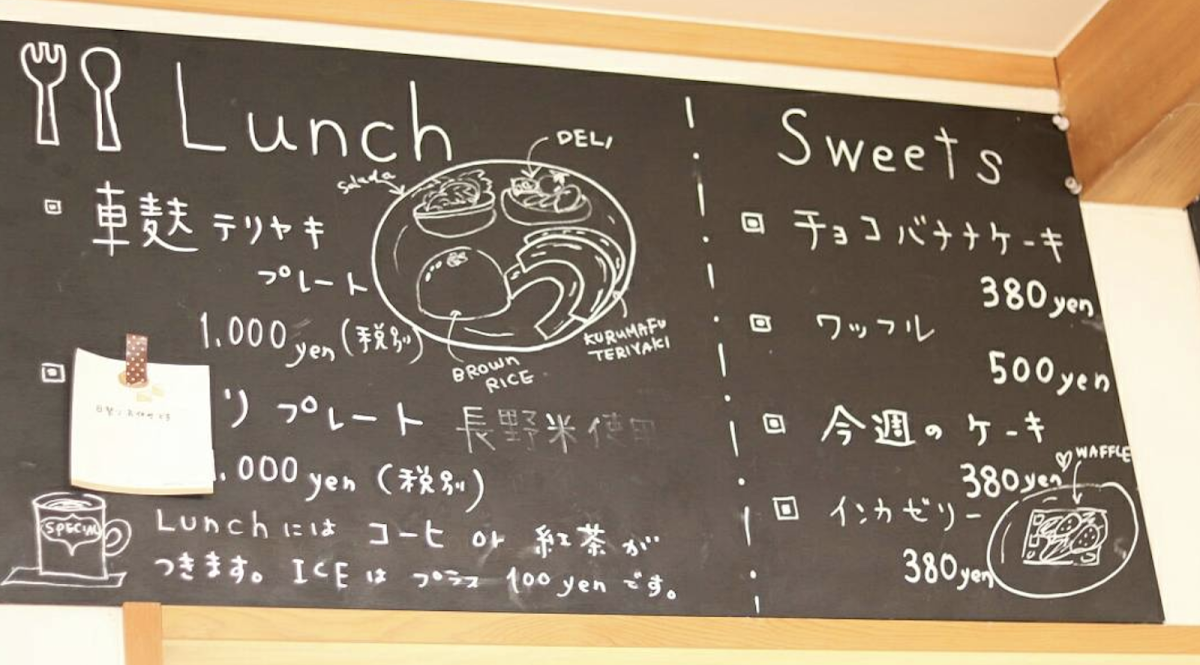 Lunch
車麩 テリヤキ
プレート
1.000 yen (税別)
リ プレート 長野米使用
.000 yen (税別)
SPECIAL
Lunch には コーヒ or 紅茶 が
つきます。 ICE は プラス 100 yen です。
Salada
DELI
KURUMAFU
TERIYAKI
BROWN
RICE
Sweets
チョコバナナケーキ
380yen
ワッフル
500yen
今週の ケーキ
380yen
インカゼリー
380yen
WAFFLE